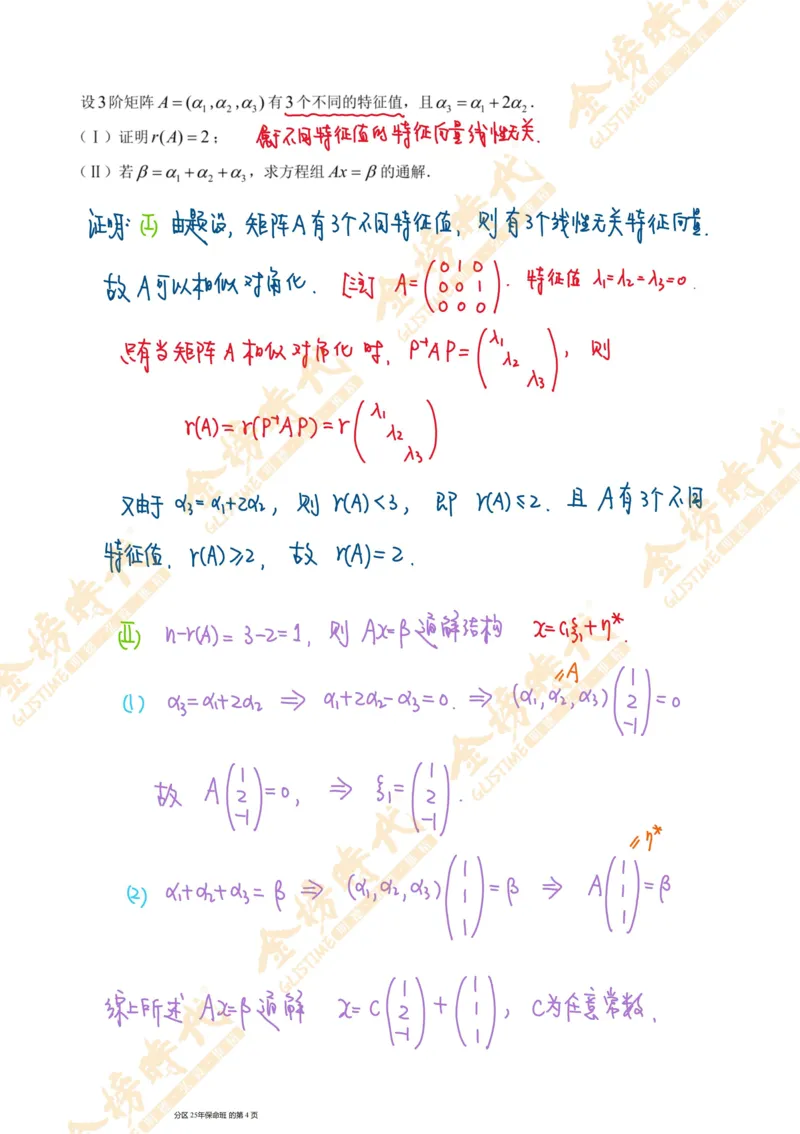 设3阶矩阵A=(α₁,α₂,α₃)有3个不同的特征值，且α₃=α₁+2α₂.
(Ⅰ)证明r(A)=2； 属于不同特征值的特征向量线性无关.
(Ⅱ)若β=α₁+α₂+α₃，求方程组Ax=β的通解.
证明: (Ⅰ) 由题设, 矩阵A有3个不同特征值, 则有3个线性无关特征向量.
故A可以相似对角化. [注] A=(0 1 0; 0 0 1; 0 0 0). 特征值 λ₁=λ₂=λ₃=0.
只有当矩阵A相似对角化时, P⁻¹AP=(λ₁ λ₂ λ₃), 则
r(A)=r(P⁻¹AP)=r(λ₁ λ₂ λ₃)
又由于 α₃=α₁+2α₂, 则 r(A)<3, 即 r(A)≤2. 且A有3个不同
特征值, r(A)≥2, 故 r(A)=2.
(Ⅱ) n-r(A)=3-2=1, 则 Ax=β通解结构 x=c₁ξ₁+η*.
(1) α₃=α₁+2α₂ ⇒ α₁+2α₂-α₃=0. ⇒ (α₁,α₂,α₃)(1 2 -1)=0 =A
故 A(1 2 -1)=0, ⇒ ξ₁=(1 2 -1).
(2) α₁+α₂+α₃=β ⇒ (α₁,α₂,α₃)(1 1 1)=β ⇒ A(1 1 1)=β =η*
综上所述 Ax=β通解 x=C(1 2 -1)+(1 1 1), C为任意常数.
分区 25年保命班 的第 4 页
金榜時代
GLISTIME